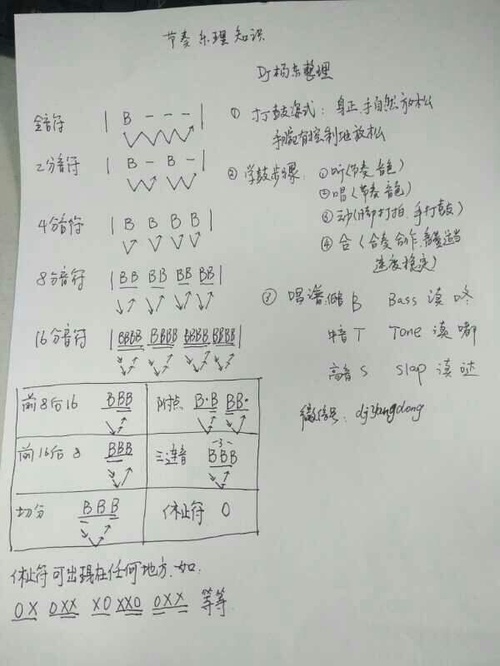 节奏乐理知识
DJ杨东整理
全音符 | B - - - |
2分音符 | B - B - |
4分音符 | B B B B |
8分音符 | BB BB BB BB |
16分音符 | BBBB BBBB BBBB BBBB |
前8后16 BBB
附点 B·B BB·
前16后8 BBB
三连音 -3- BBB
切分 BBB
休止符 0
休止符可出现在任何地方.如.
0X 0XX X0 XX0 0XX 等等
① 打鼓姿式: 身正,手自然放松
手腕有控制地放松
② 学鼓步骤: ①听(节奏 音色)
②唱(节奏 音色)
③动(脚打拍,手打鼓)
④合(合奏 合作,音量适当
速度稳定)
③ 唱谱:低音 B Bass 读 咚
中音 T Tone 读 嘟
高音 S Slap 读 哒
微信号: djyangdong